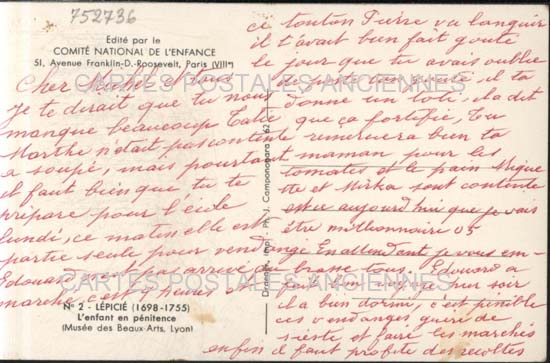 752736
Edité par le
COMITÉ NATIONAL DE L'ENFANCE
51, Avenue Franklin-D.-Roosevelt, Paris (VIIIe)
Cher
je te dirait que tu nous
manque beaucoup Tatie
Marthe n'était pas contente
a soupé, mais pourtant
il faut bien que tu te
prépare pour l'école
lundi, ce matin elle est
partie seule pour vendange
Edouard
marché c'est
N° 2 - LÉPICIÉ (1698-1755)
L'enfant en pénitence
(Musée des Beaux-Arts, Lyon)
Draeger, Imp. - Ph. J. Camponogara 62
ce tonton Pierre va languir
il t'avait bien fait gouté
le jour que tu avais oublié
de juste ton gouté, il t'a
donné un loti, il a dit
que ça fortifie, tu
remerciera bien ta
maman pour les
tomates et le pain Mique
tte et Mirka sont contente
est ce aujourd'hui que je vais
être millionnaire 05
En attendant je vous em-
brasse tous Edouard a
pour son voyage hier soir
il a bien dormi, c'est pénible
ces vendanges guère de
sieste et faire les marchés
enfin il faut profité des récoltes
CARTES POSTALES ANCIENNES
CARTES POSTALES ANCIENNES